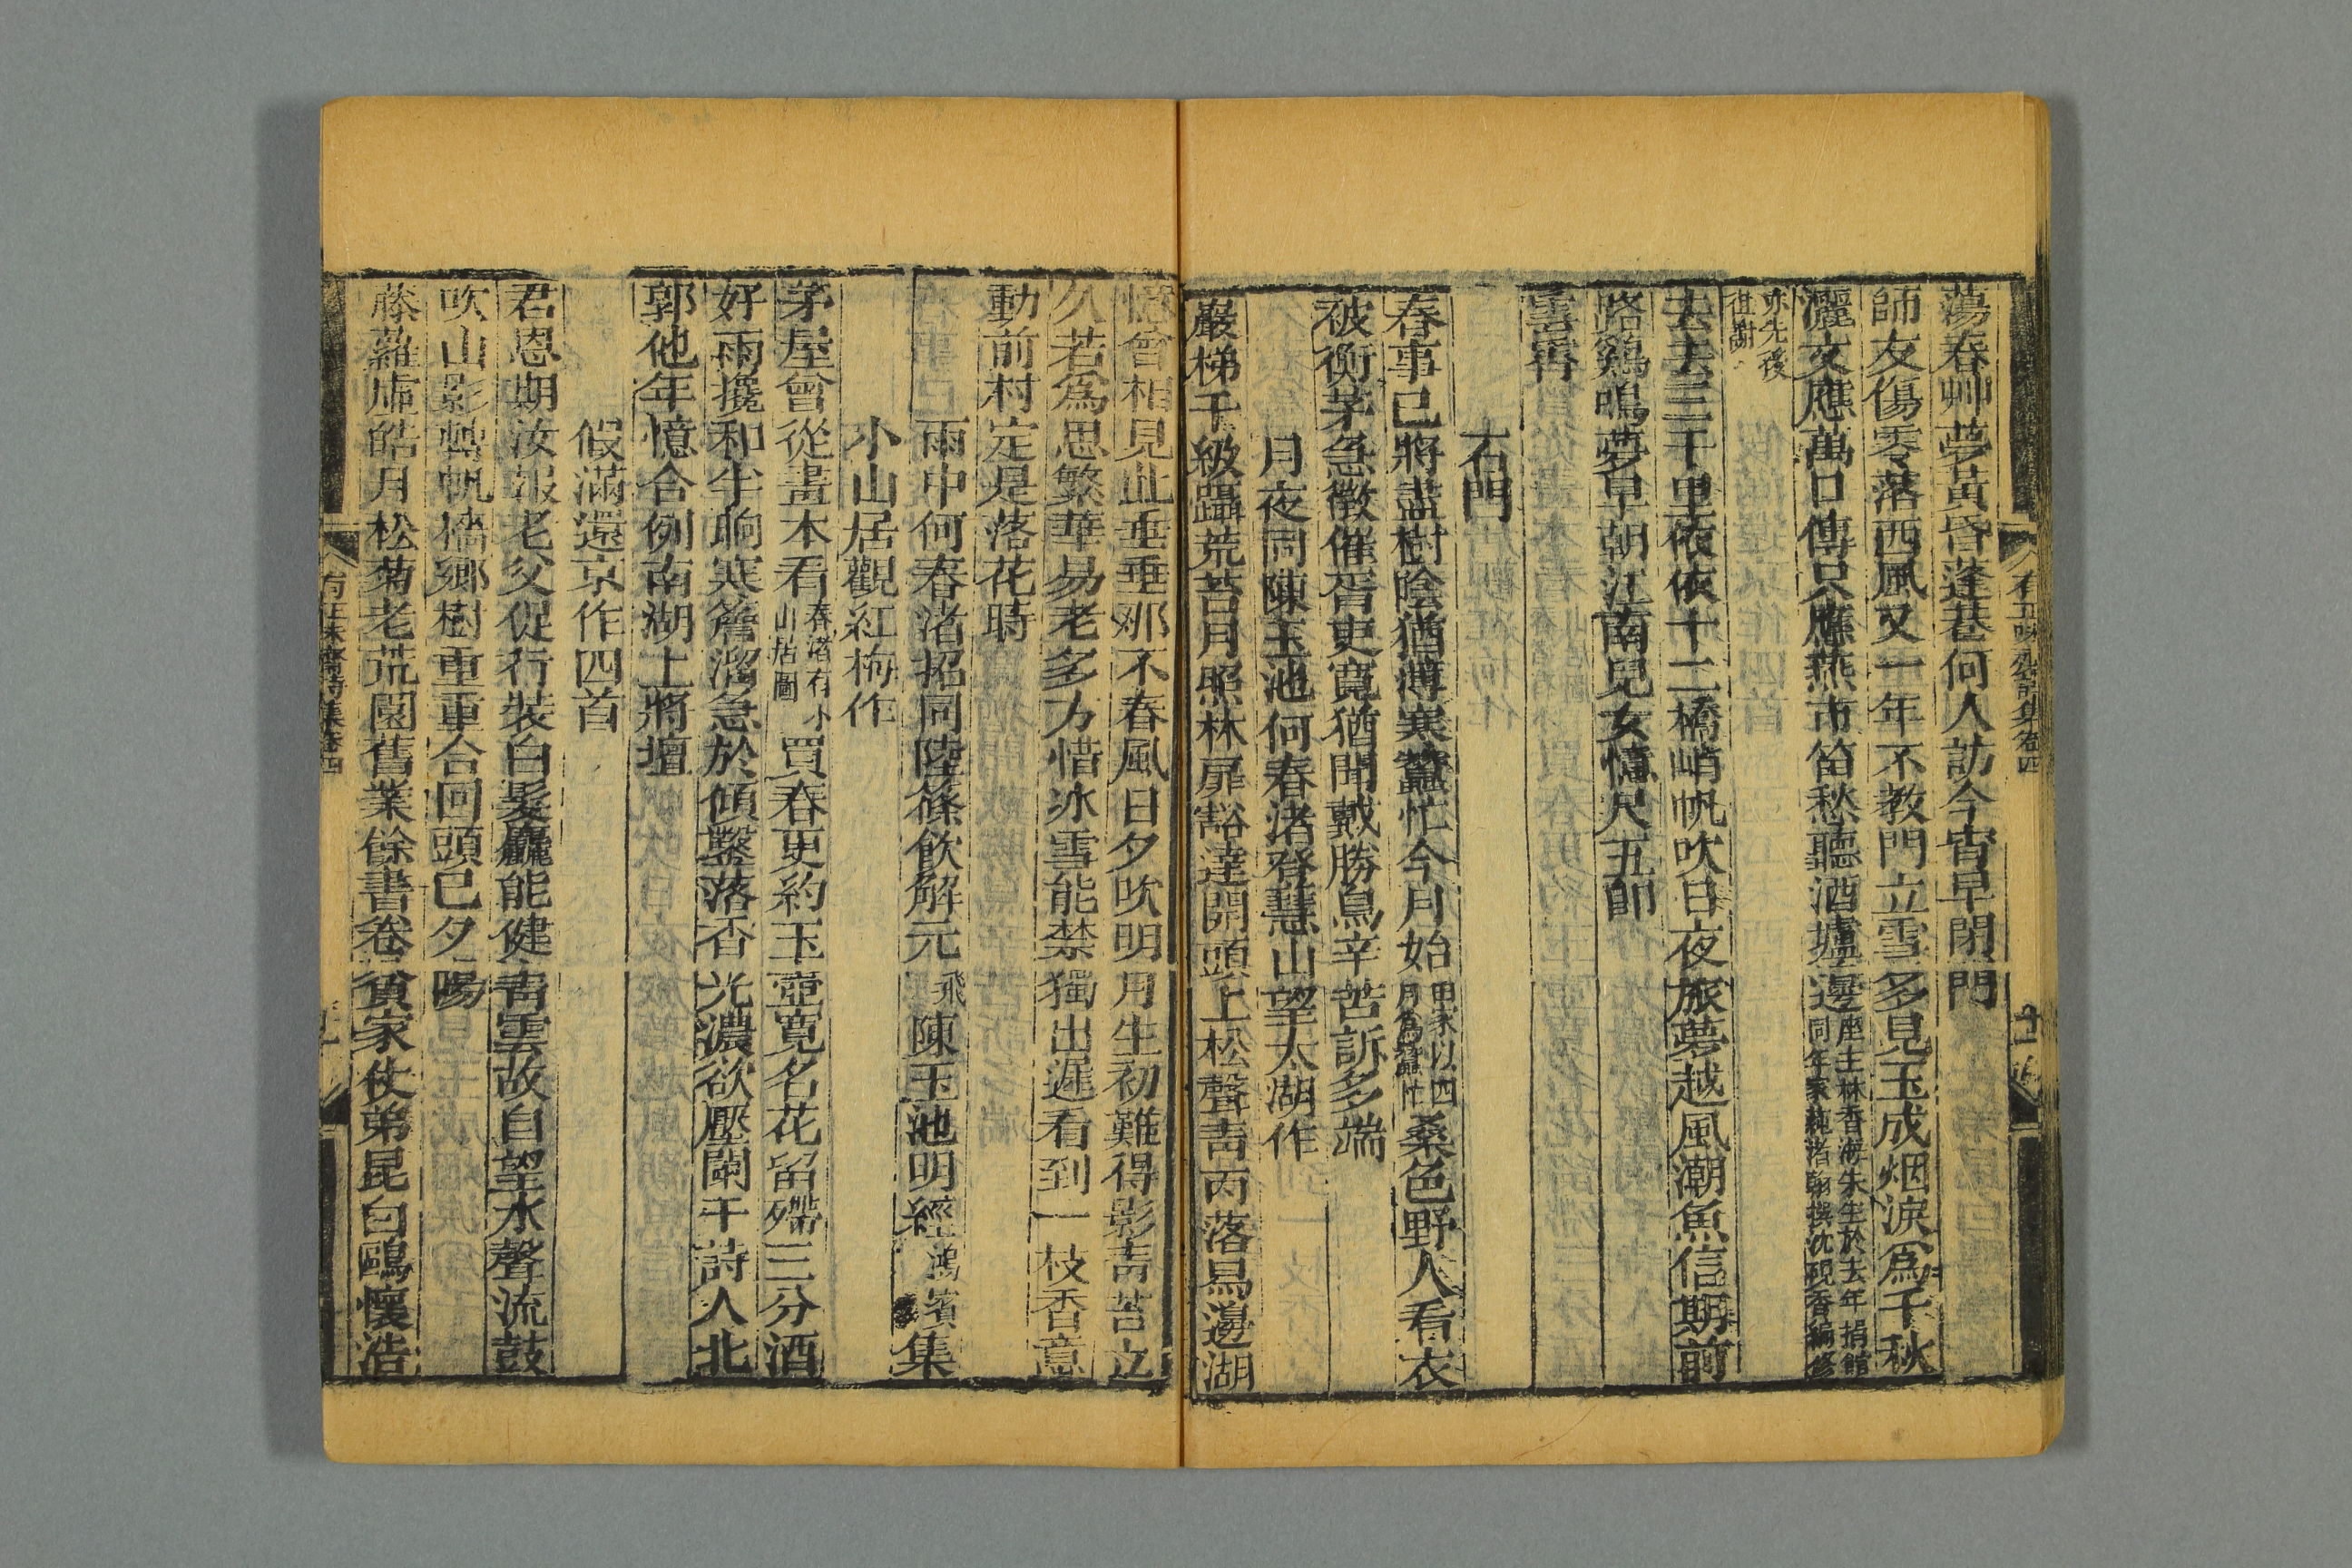 蕩春艸夢黃昏蓬巷何人訪今宵早閉門
師友傷零落西風又一年不教門立雪多見玉成烟淚爲千秋
灑文應萬口傳只應燕市笛愁聽酒壚邊座主林香海朱生於去年捐館
同年家蒓渚翰撰沈硯香編修
亦先後
徂謝
去去三千里依依十二橋峭帆吹日夜旅夢越風潮魚信期前
路鷄鳴夢早朝江南兒女憶尺五卽
雲霄
石門
春事已將盡樹陰猶薄寒蠶忙今月始田家以四
月爲蠶忙桑色野人看衣
被衡茅急徵催胥吏寬猶聞戴勝鳥辛苦訴多端
月夜同陳玉池何春渚登慧山望太湖作
巖梯千級躡荒苔月照林扉豁達開頭上松聲青雨落易邊湖
憶曾相見此垂垂那不春風日夕吹明月生初難得影青苔立
久若爲思繁華易老多力惜冰雪能禁獨出遲看到一枝香意
動前村定是落花時
雨中何春渚招同陸篠飮解元飛陳玉池明經鴻賓集
小山居觀紅梅作
茅屋曾從畫本看春渚有小
山居圖買春更約玉壺寬名花留殢三分酒
好雨攙和半晌寒簷溜急於傾鑿落否光濃欲壓闌干詩人北
郭他年憶合例南湖上將壇
假滿還京作四首
君恩期汝報老父促行裝白髮麤能健靑雲故自望水聲流鼓
吹山影墊帆檣鄉樹重重合回頭已夕陽
藤蘿虛皓月松菊老荒園舊業餘書卷貧家仗弟昆白鷗懷浩
有正味齋詩集卷四